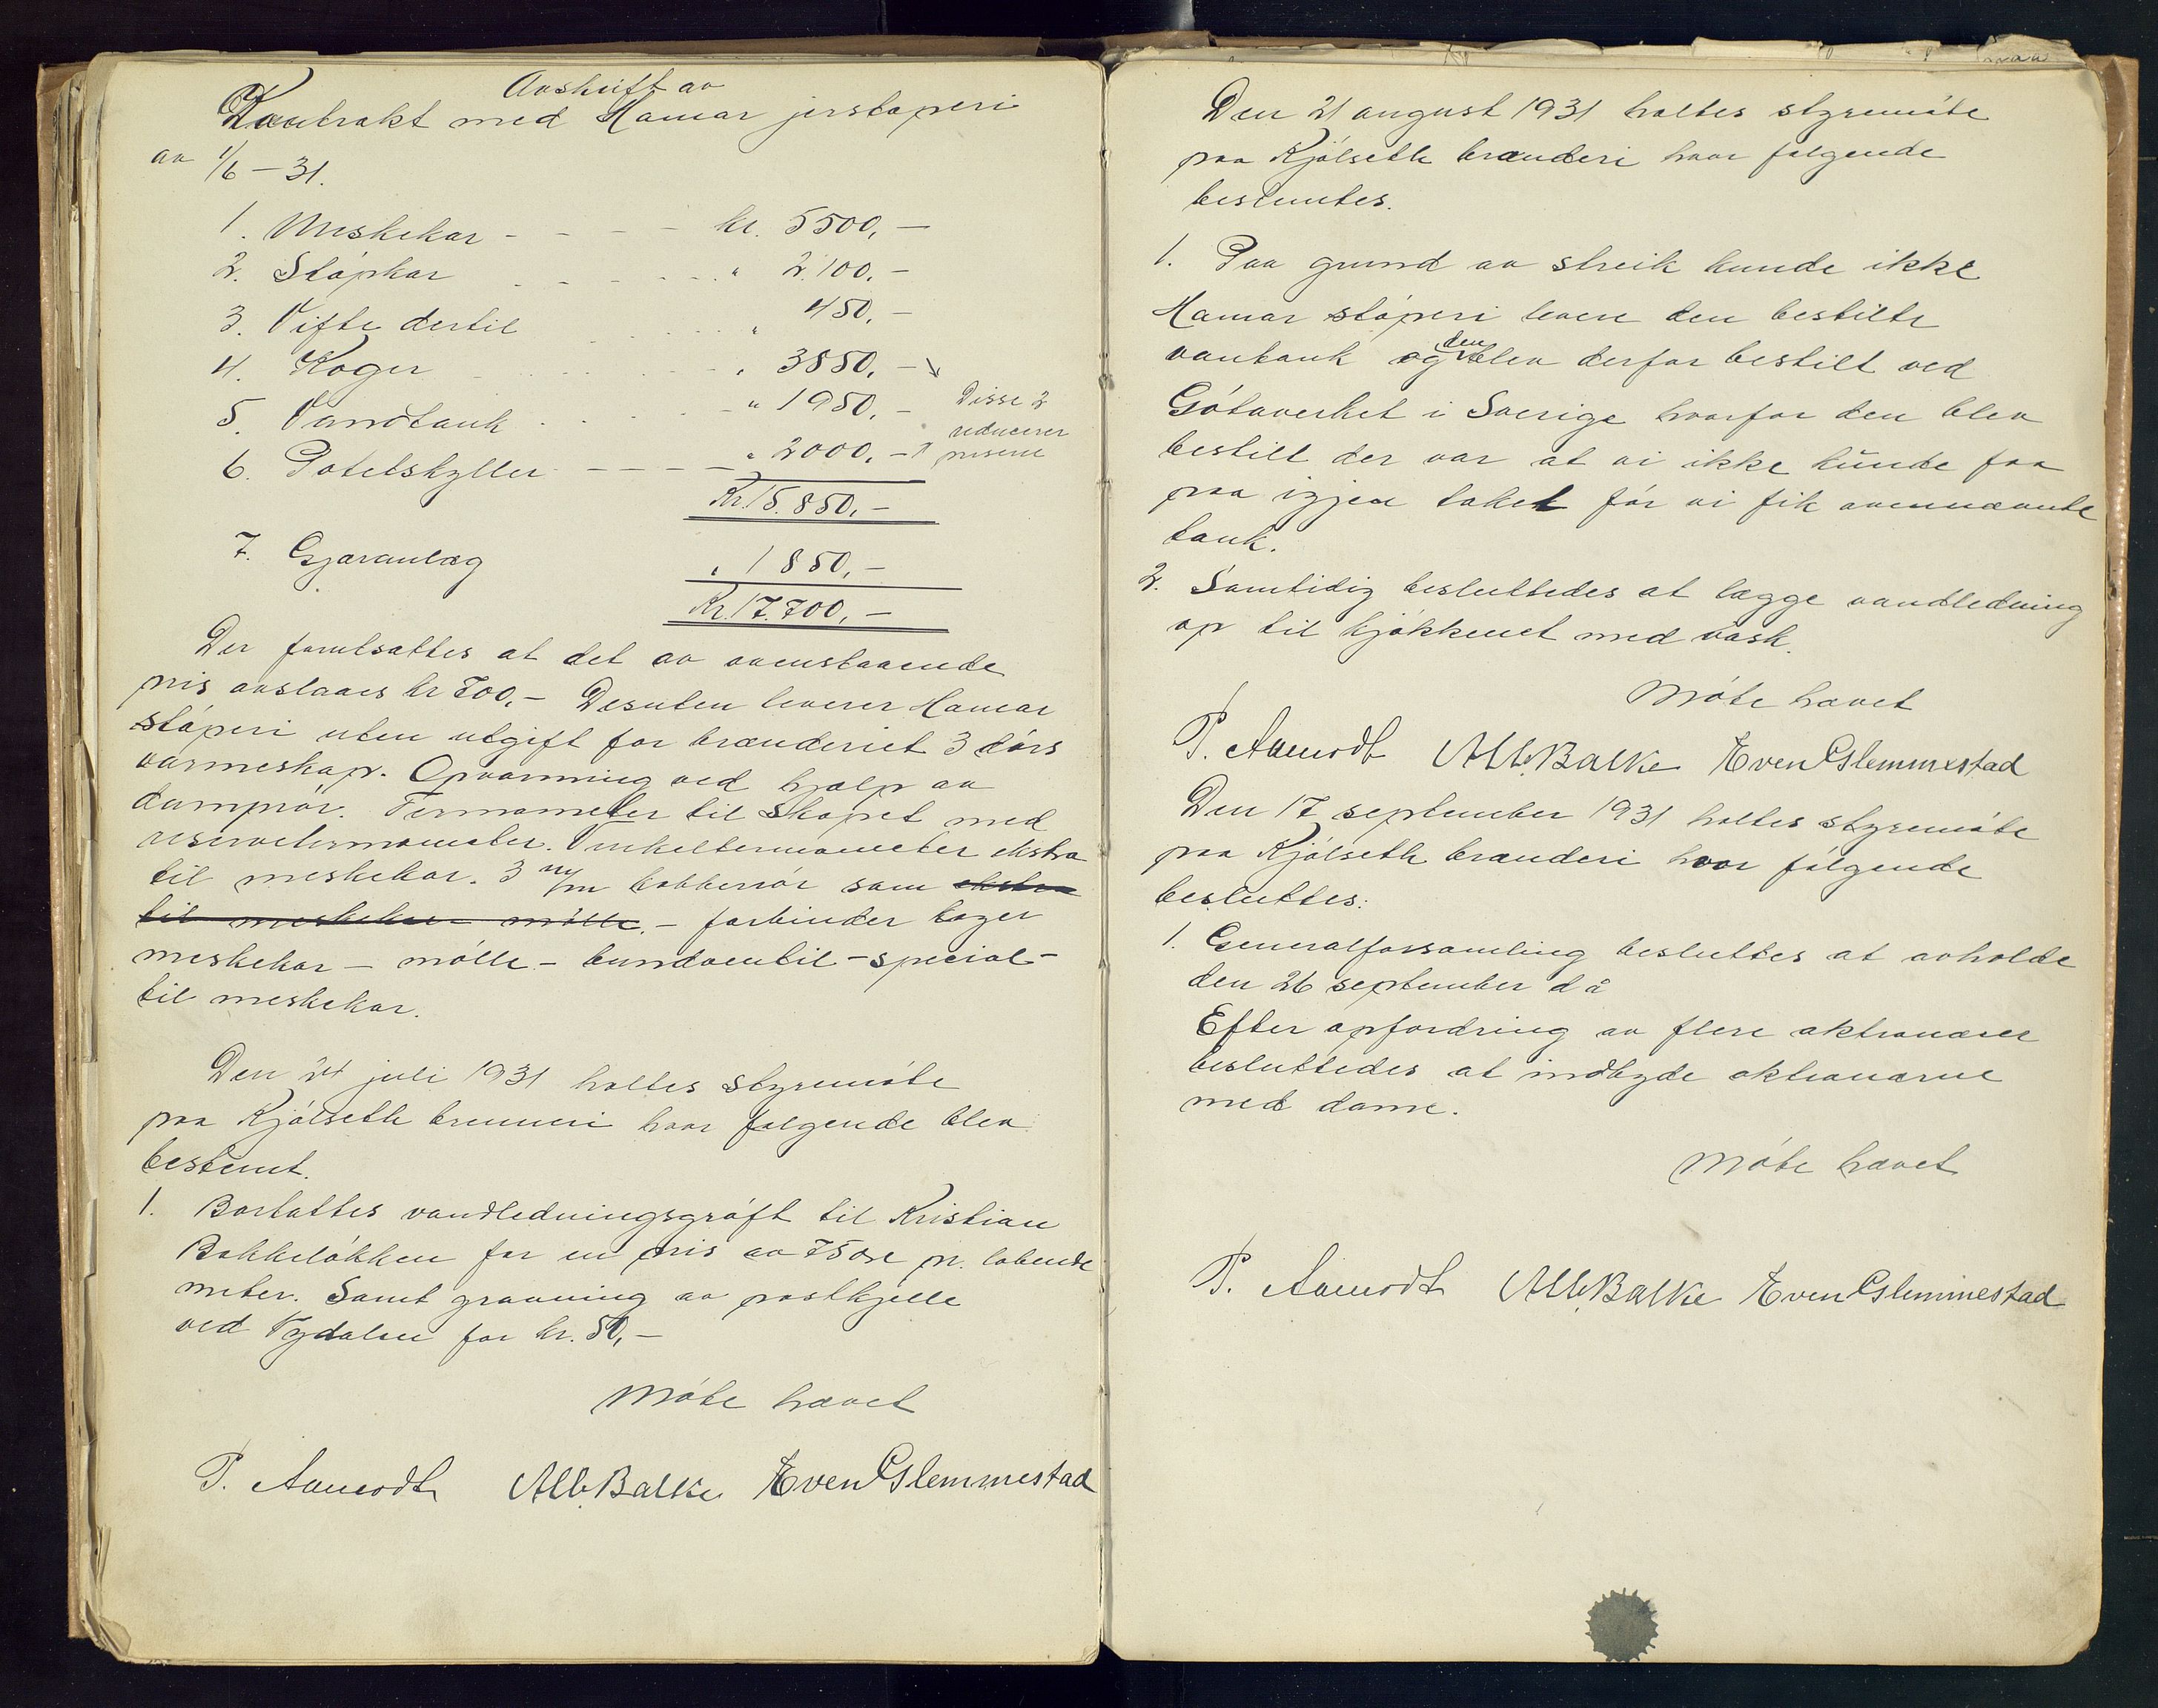 Avskrift av
Kontrakt med Hamar jerstøperi
av 1/6 – 31.
1. Meskekar - - - - kr. 5500,-
2. Støpkar - - - - " 2.100,-
3. Vifte dertil . . . " 450,-
4. Koger - - - - " 3850,-
5. Vandtank . . . - " 1950,- Disse 2
reducerer
6. Potetskyller - - - - " 2000,- prisene
Kr. 15.850,-
7. Gjæranlæg " 1850,-
Kr. 17.700,-
Der forutsættes at det av ovenstaaende
pris avslaaes kr 700,- Desuten leverer Hamar
støperi uten utgift for brænderiet 3 dørs
varmeskap. Opvarming ved hjælp av
damprør. Termometer til skapet med
reservetermometer. Vinkeltermometer ekstra
til meskekar. 3 m/m kobberrør som ekstra
til meskekar mølle. - forbinder koger
meskekar - mølle - bundventil - special -
til meskekar.
Den 24 juli 1931 holtes styremøte
paa Kjølseth brenneri hvor følgende blev
bestemt.
1. Bortattes vandledningsgrøft til Kristian
Bakkeløkken for en pris av 75 øre pr. løbende
meter. Samt gravning av postkjelle
ved Nydalen for kr. 50,-
Møte hævet
P. Aamodt Alb. Balke Even Glemmestad
Den 21 august 1931 holtes styremøte
paa Kjølseth brænderi hvor følgende
bestemtes.
1. Paa grund av streik kunde ikke
Hamar støperi levere den bestilte
vantank og den blev derfor bestilt ved
Götaverket i Sverige hvorfor den blev
bestilt der var at vi ikke kunde faa
paa igjen taket før vi fik ovennævnte
tank.
2. Samtidig besluttedes at lægge vandledning
op til kjøkkenet med vask.
Møte hævet
P. Aamodt Alb. Balke Even Glemmestad
Den 17 september 1931 holtes styremøte
paa Kjølseth brænderi hvor følgende
besluttes:
1. Generalforsamling besluttes at avholde
den 26 september d å
Efter opfordring av flere aktionærer
besluttedes at indbyde aktionærne
med dame.
Møte hævet
P. Aamodt Alb. Balke Even Glemmestad